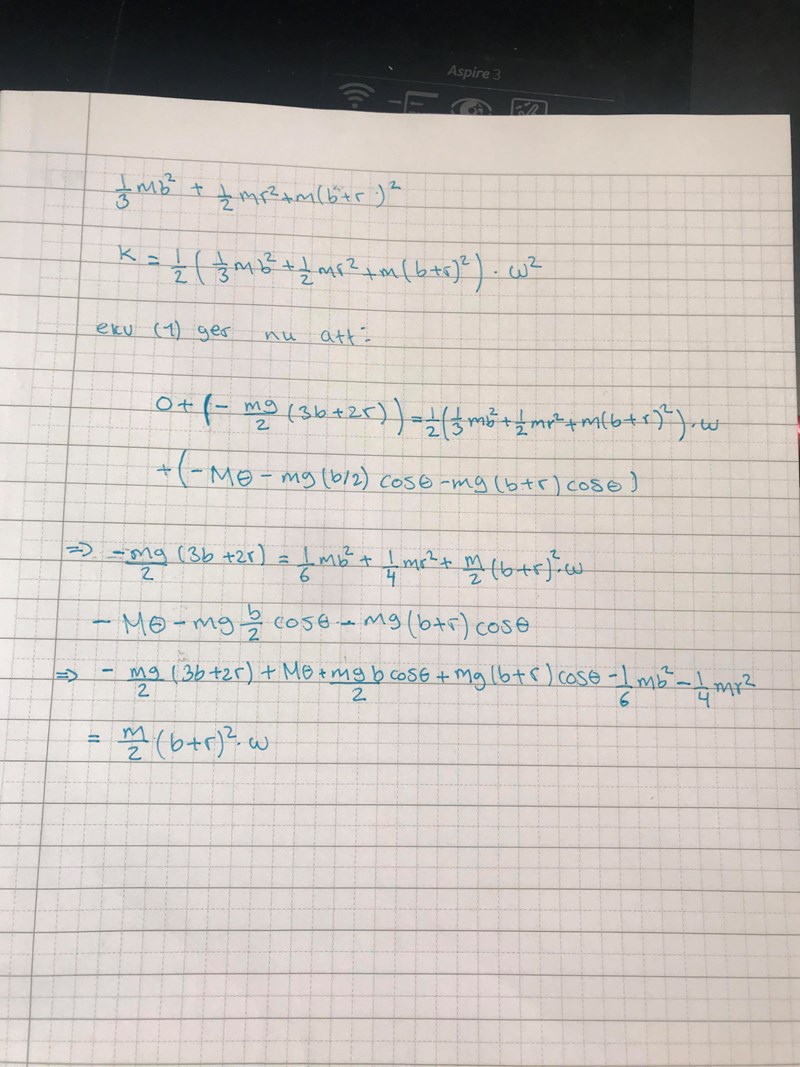 Aspire 3
1/3 mb² + 1/2 mr² + m(b+r)²
K = 1/2 (1/3 mb² + 1/2 mr² + m(b+r)²) · ω²
ekv (1) ger nu att:
0 + (- mg/2 (3b+2r)) = 1/2 (1/3 mb² + 1/2 mr² + m(b+r)²) · ω
+ (- Mθ - mg(b/2) cosθ - mg(b+r) cosθ)
=> -mg/2 (3b+2r) = 1/6 mb² + 1/4 mr² + m/2 (b+r)² · ω
- Mθ - mg b/2 cosθ - mg(b+r) cosθ
=> - mg/2 (3b+2r) + Mθ + mgb/2 cosθ + mg(b+r) cosθ - 1/6 mb² - 1/4 mr²
= m/2 (b+r)² · ω